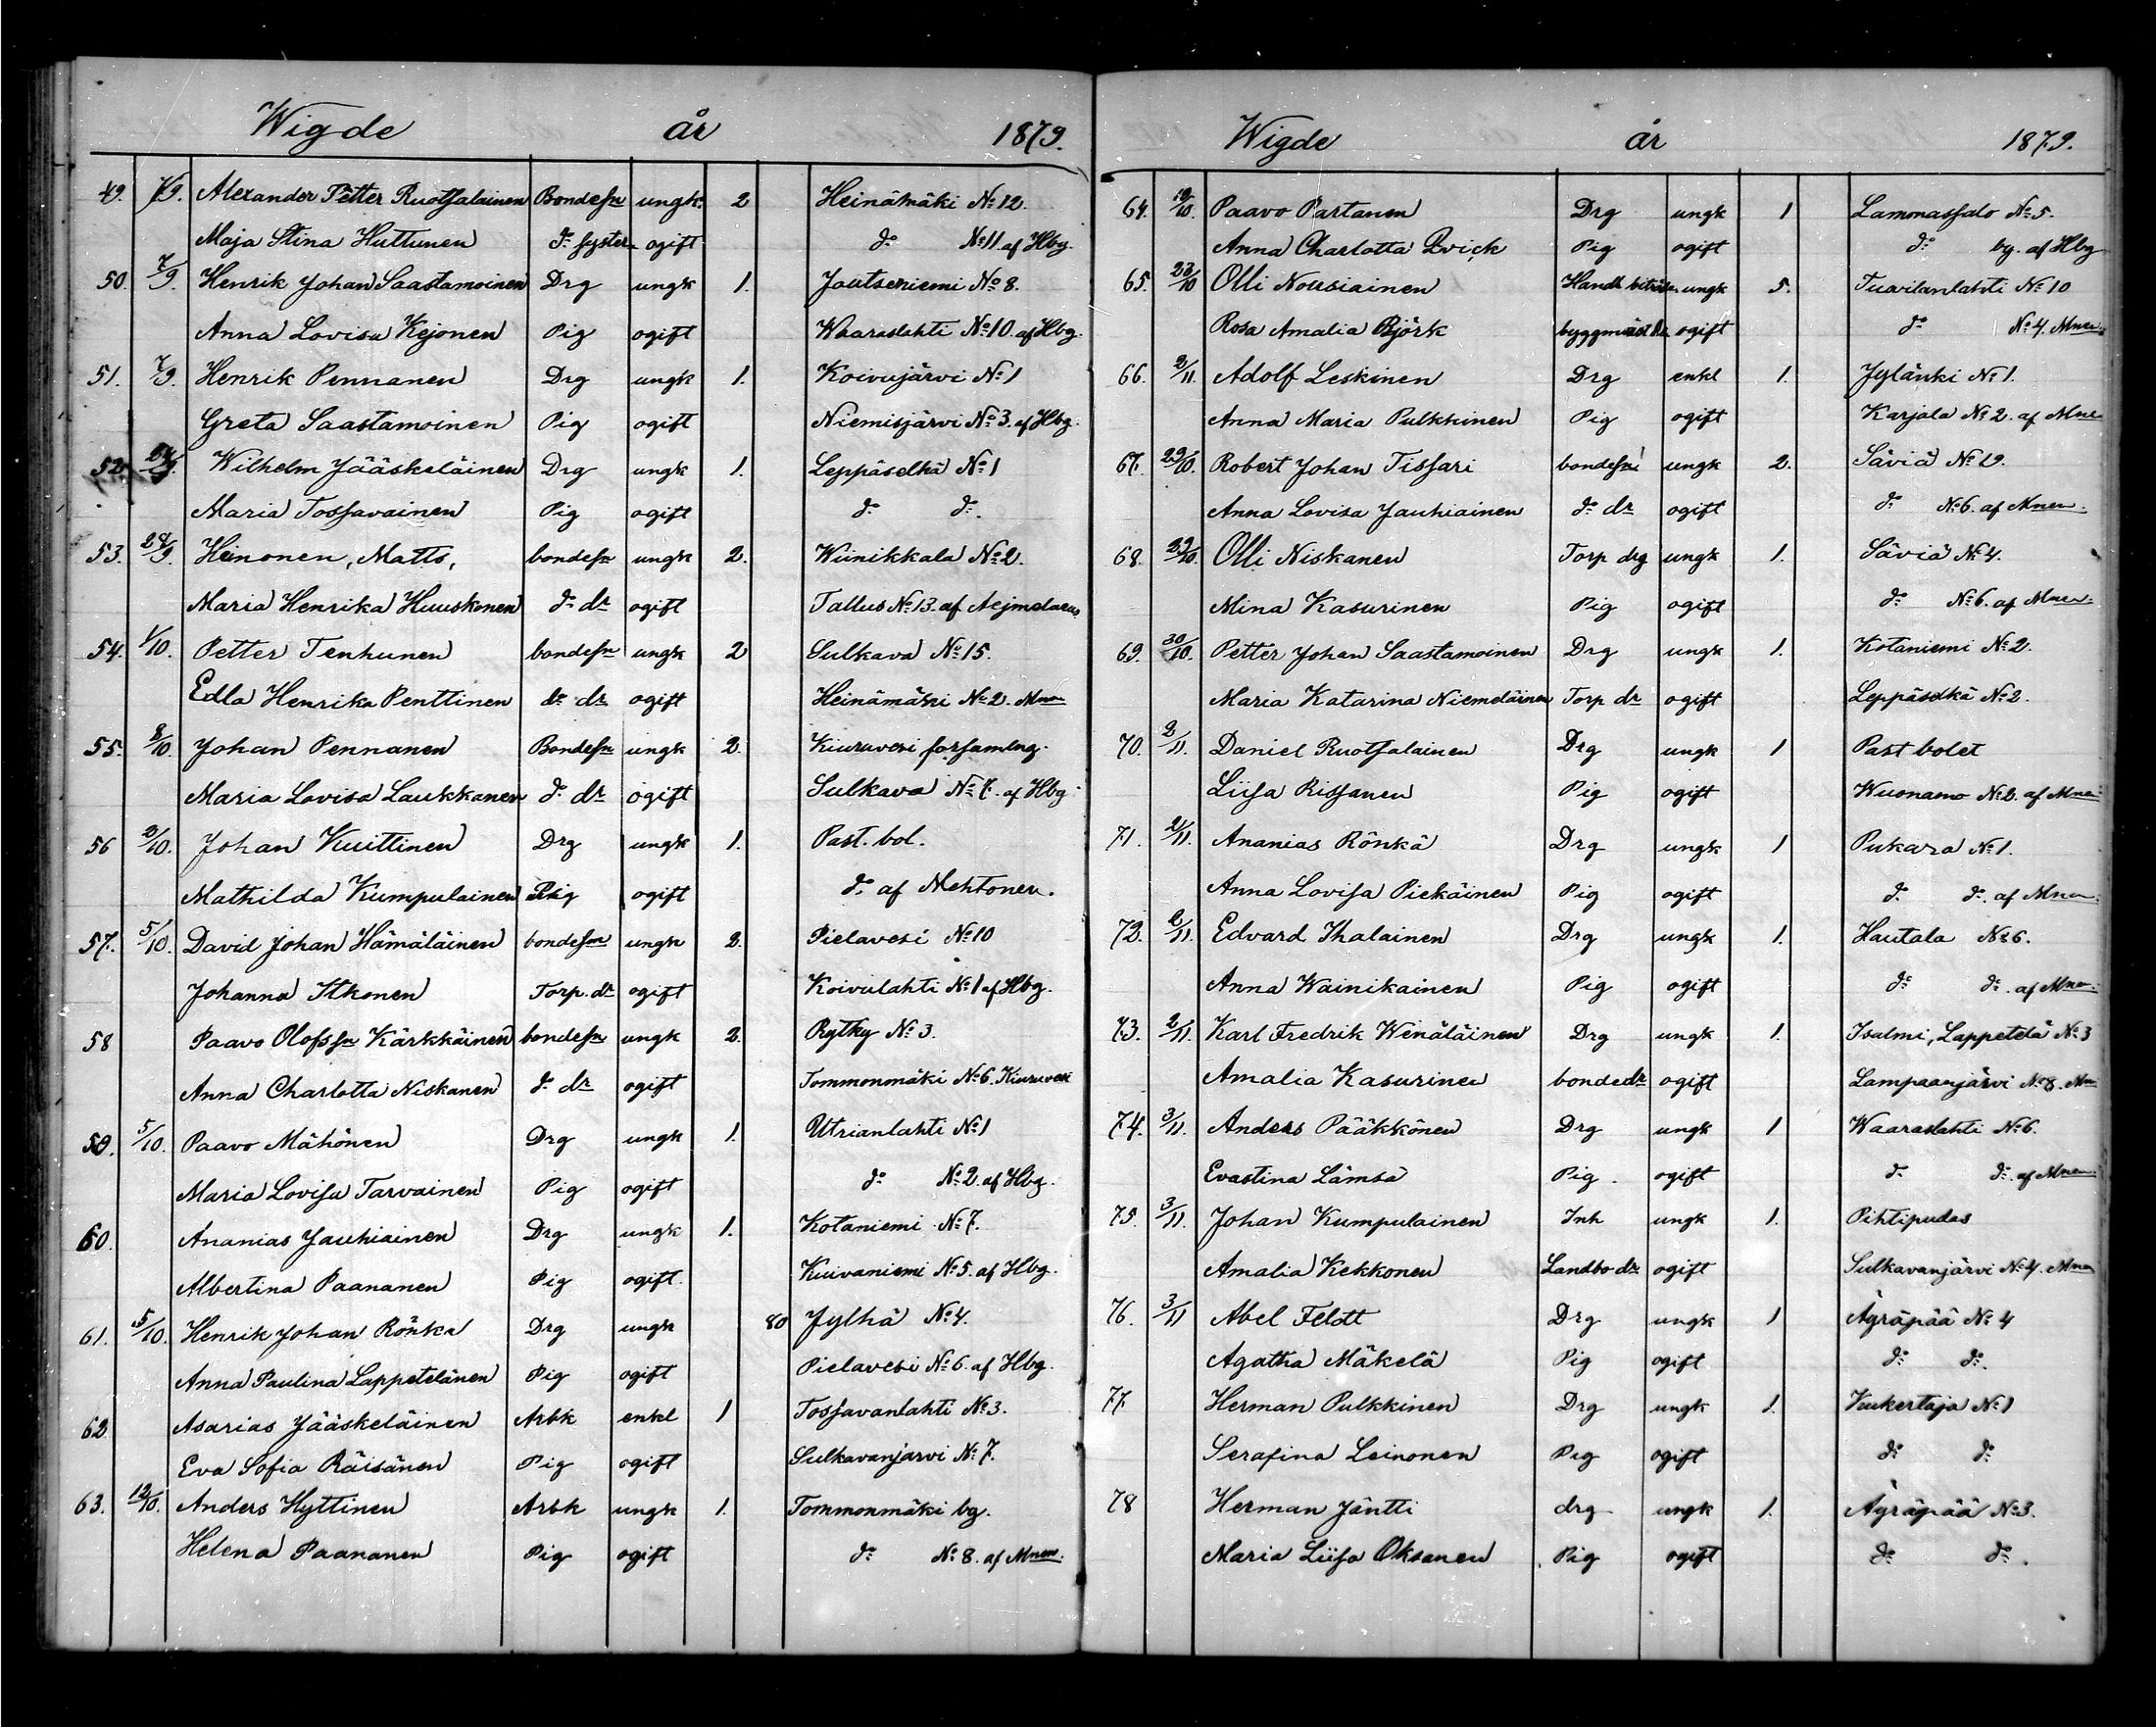 Wigde år 1879.
49. 7/9. Alexander Petter Ruotsalainen Bondesn ungk. 2 Heinämäki No 12.
Maja Stina Huttunen do syster ogift do No 11 af Hbg.
50. 7/9. Henrik Johan Saastamoinen Drg ungk 1. Joutseniemi No 8.
Anna Lovisa Kejonen Pig ogift Waaraslahti No 10. af Hbg.
51. 7/9. Henrik Pennanen Drg ungk 1. Koivujärvi No 1
Greta Saastamoinen Pig ogift Niemisjärvi No 3. af Hbg.
52. Wilhelm Jääskeläinen Drg ungk 1. Leppäselkä No 1
Maria Tossavainen Pig ogift do do.
53. 28/9. Heinonen, Matts, bondesn ungk 2. Wiinikkala No 2.
Maria Henrika Huuskonen do dr ogift Tallus No 13. af Aejmelaeus
54. 1/10. Petter Tenhunen bondesn ungk 2 Sulkava No 15.
Edla Henrika Penttinen do dr ogift Heinämäki No 2. Mnen
55. 8/10. Johan Pennanen Bondesn ungk 2. Kiuruvesi forsamlng.
Maria Lovisa Laukkanen do dr ogift Sulkava No 7. af Hbg.
56 3/10. Johan Kuittinen Drg ungk 1. Past. bol.
Mathilda Kumpulainen Pig ogift do af Mehtonen.
57. 5/10. David Johan Hämäläinen bondesn ungk 2. Pielavesi No 10
Johanna Itkonen Torp. dr ogift Koivulahti No 1 af Hbg.
58 Paavo Olofssn Kärkkäinen bondesn ungk 2. Rytky No 3.
Anna Charlotta Niskanen do dr ogift Tommonmäki No 6. Kiuruvesi
59. 5/10. Paavo Mähönen Drg ungk 1. Utrianlahti No 1
Maria Lovisa Tarvainen Pig ogift do No 2. af Hbg.
60. Ananias Jauhiainen Drg ungk 1. Kotaniemi No 7.
Albertina Paananen Pig ogift. Kuivaniemi No 5. af Hbg.
61. 5/10. Henrik Johan Rönkä Drg ungk 80 Jylhä No 4.
Anna Paulina Lappetelänen Pig ogift Pielavesi No 6. af Hbg.
62 Asarias Jääskeläinen Arbk enkl 1 Tossavanlahti No 3.
Eva Sofia Räisänen Pig ogift Sulkavanjärvi No 7.
63. 12/10. Anders Hyttinen Arbk ungk 1. Tommonmäki bg.
Helena Paananen Pig ogift do No 8. af Mnen.
Wigde år 1879.
64. 19/10. Paavo Partanen Drg ungk 1 Lammassalo No 5.
Anna Charlotta Qvick Pig ogift do by. af Hbg
65. 23/10 Olli Nousiainen Handl. biträde ungk 5. Tuovilanlahti No 10
Rosa Amalia Björk ogift do No 4. Mnen
66. 2/11. Adolf Leskinen Drg enkl 1. Jylänki No 1.
Anna Maria Pulkkinen Pig ogift Karjala No 2. af Mnen
67. 29/10. Robert Johan Tissari bondesn ungk 2. Säviä No 29.
Anna Lovisa Jauhiainen do dr ogift do No 6. af Mnen.
68. 29/10. Olli Niskanen Torp drg ungk 1. Säviä No 4.
Mina Kasurinen Pig ogift do No 6. af Mnen.
69. 30/10. Petter Johan Saastamoinen Drg ungk 1. Kotaniemi No 2.
Maria Katarina Niemeläinen Torp dr ogift Leppäselkä No 2.
70. 2/11. Daniel Ruotsalainen Drg ungk 1 Past bolet
Liisa Rissanen Pig ogift Wuonamo No 2. af Mnen
71. 2/11. Ananias Rönkä Drg ungk 1 Pukara No 1.
Anna Lovisa Piekäinen Pig ogift do do. af Mnen.
72. 2/11. Edvard Ihalainen Drg ungk 1. Hautala No 6.
Anna Wainikainen Pig ogift do do. af Mnen.
73. 2/11. Karl Fredrik Wenäläinen Drg ungk 1. Isalmi, Lappetelä No 3
Amalia Kasurinen bondedr ogift Lampaanjärvi No 8. Mn
74. 3/11. Anders Pääkkönen Drg ungk 1 Waaraslahti No 6.
Evastina Lämsä Pig. ogift do do. af Mnen
75. 3/11. Johan Kumpulainen Inh ungk 1. Pihtipudas
Amalia Kekkonen Landbo dr ogift Sulkavanjärvi No 4. Mnen
76. 3/11 Abel Feldt Drg ungk 1 Ägräpää No 4
Agatha Mäkelä Pig ogift do do.
77. Herman Pulkkinen Drg ungk 1. Kukertaja No 1
Serafina Leinonen Pig ogift do do
78 Herman Jäntti drg ungk 1. Ägräpää No 3.
Maria Liisa Oksanen Pig ogift do do.